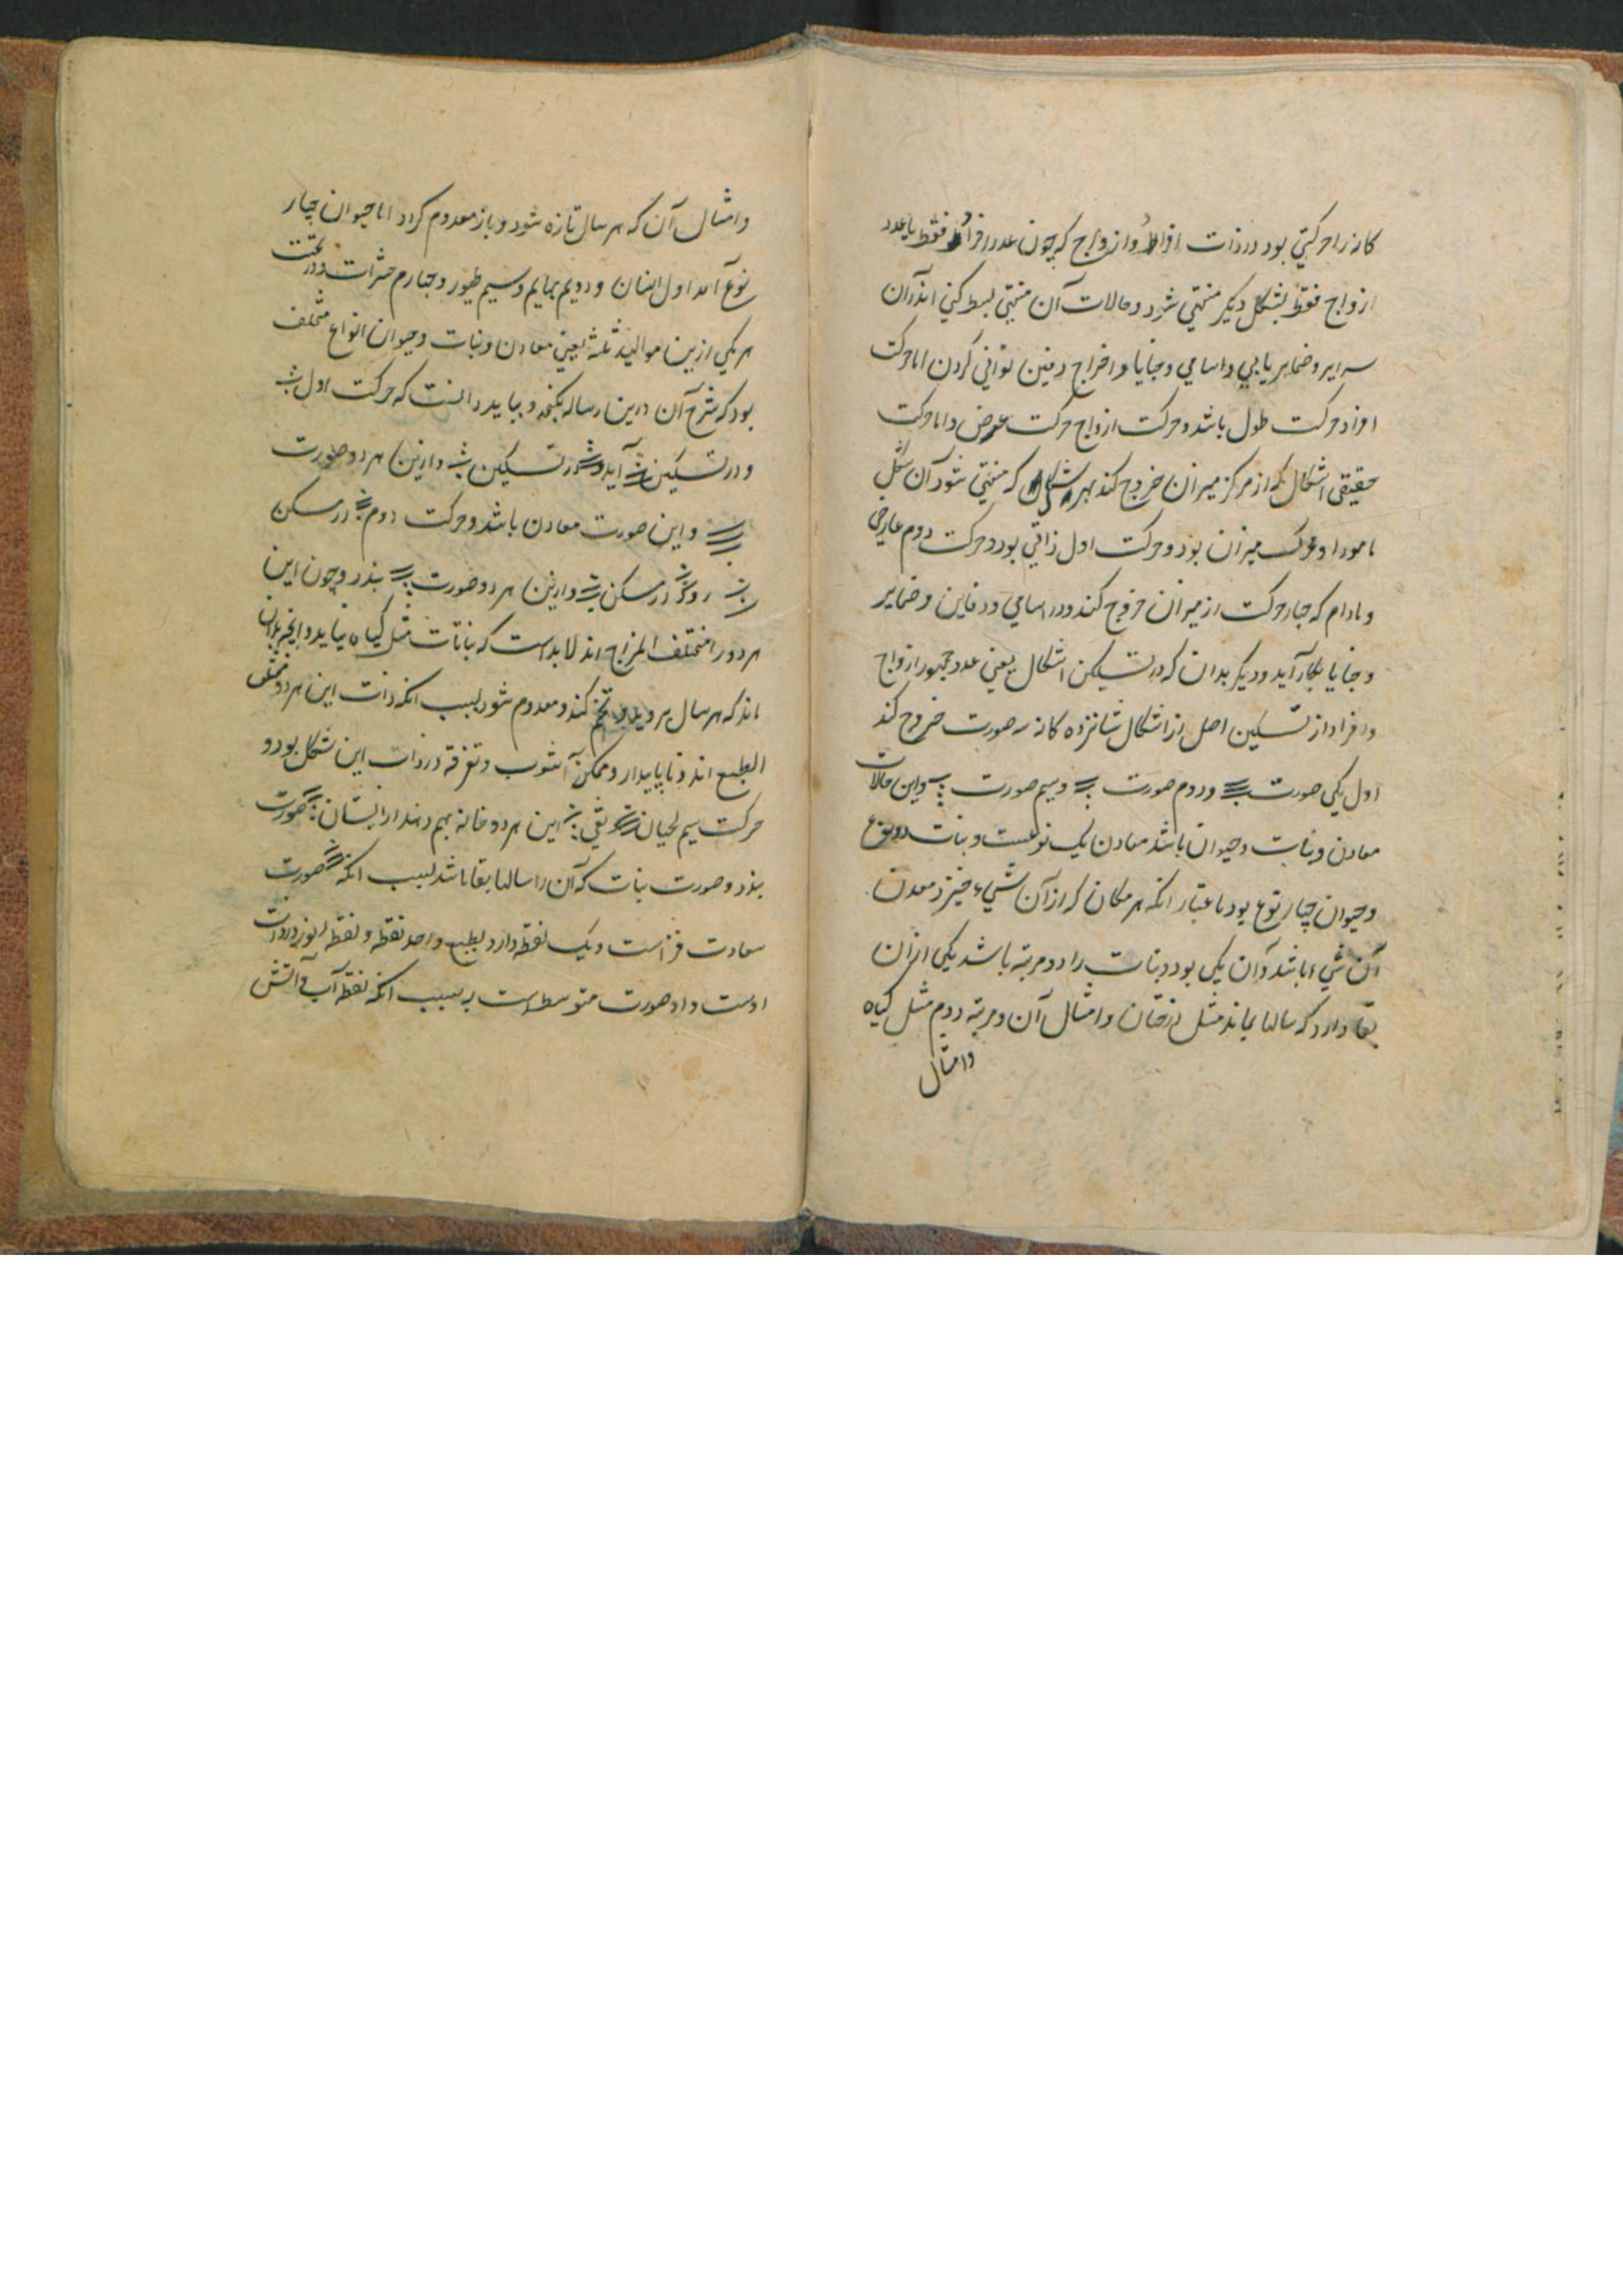 کانه را حرکتی بود در ذات افراد و ازواج که چون عدد افراد فقط یا عدد
ازواج فقط بشکل دیکر منتهی شود و حالات آن منتهی بسط کنی اندر آن
سرایر و ضمایر یابی و اسامی و خبایا و اخراج دفین توانی کردن اما حرکت
افراد حرکت طول باشد و حرکت ازواج حرکت عرض و اما حرکت
حقیقی اشکال که از مرکز میزان خروج کند بهر شکل که منتهی شود آن شکل
میزان بود و حرکت اول ذاتی بود و حرکت دوم عارضی
و مادام که چهار حرکت از میزان خروج کند و در اسامی و دفاین و ضمایر
و خبایا بکار آید و دیکر بدان که در تسکین اشکال یعنی عدد جمهور ازواج
و افراد از تسکین اصل از اشکال شانزده کانه سه صورت خروج کند
اول یکی صورت و دوم صورت و سیم صورت و این حالات
معادن و نبات و حیوان باشد معادن یک نوعست و نبات دو نوع
و حیوان چهار نوع بود باعتبار انکه هر مکان که از آن شیء خیزد معدن
آن شیء باشد و آن یکی بود و نبات را دو مرتبه باشد یکی از آن
بقا دارد که سالها بماند مثل درختان و امثال آن و مرتبه دوم مثل کیاه
و امثال
و امثال آن که هر سال تازه شود و باز معدوم کردد اما حیوان چهار
نوع آمد اول انسان و دویم بهایم و سیم طیور و چهارم حشرات و در تحت
هر یکی ازین موالید ثلثه یعنی معادن و نبات و حیوان انواع مختلف
بود که شرح آن درین رساله نکنجد و بباید دانست که حرکت اول
و در تسکین آید و در تسکین و ازین هر دو صورت
و این صورت معادن باشد و حرکت دوم در مسکن
در مسکن و ازین هر دو صورت بذر و چون این
هر دو را مختلف المزاج اند لابد است که نباتات مثل کیاه بیاید و انچه بدان
ماند که هر سال بروید و تخم کند و معدوم شود بسبب انکه ذات این هر دو مختلف
الطبع اند و ناپایدار و ممکن آشوب و تفرقه در ذات این شکل بود و
حرکت سیم لحیان نقی این هر دو خانه بهم دهند از ایشان صورت
بذر و صورت نبات که آن را سالها بقا باشد بسبب انکه صورت
سعادت فزاست و یک نقطه دارد بطبع واحد نقطه و نقطه
اوست و او صورت متوسط است به سبب انکه نقطه آب و آتش